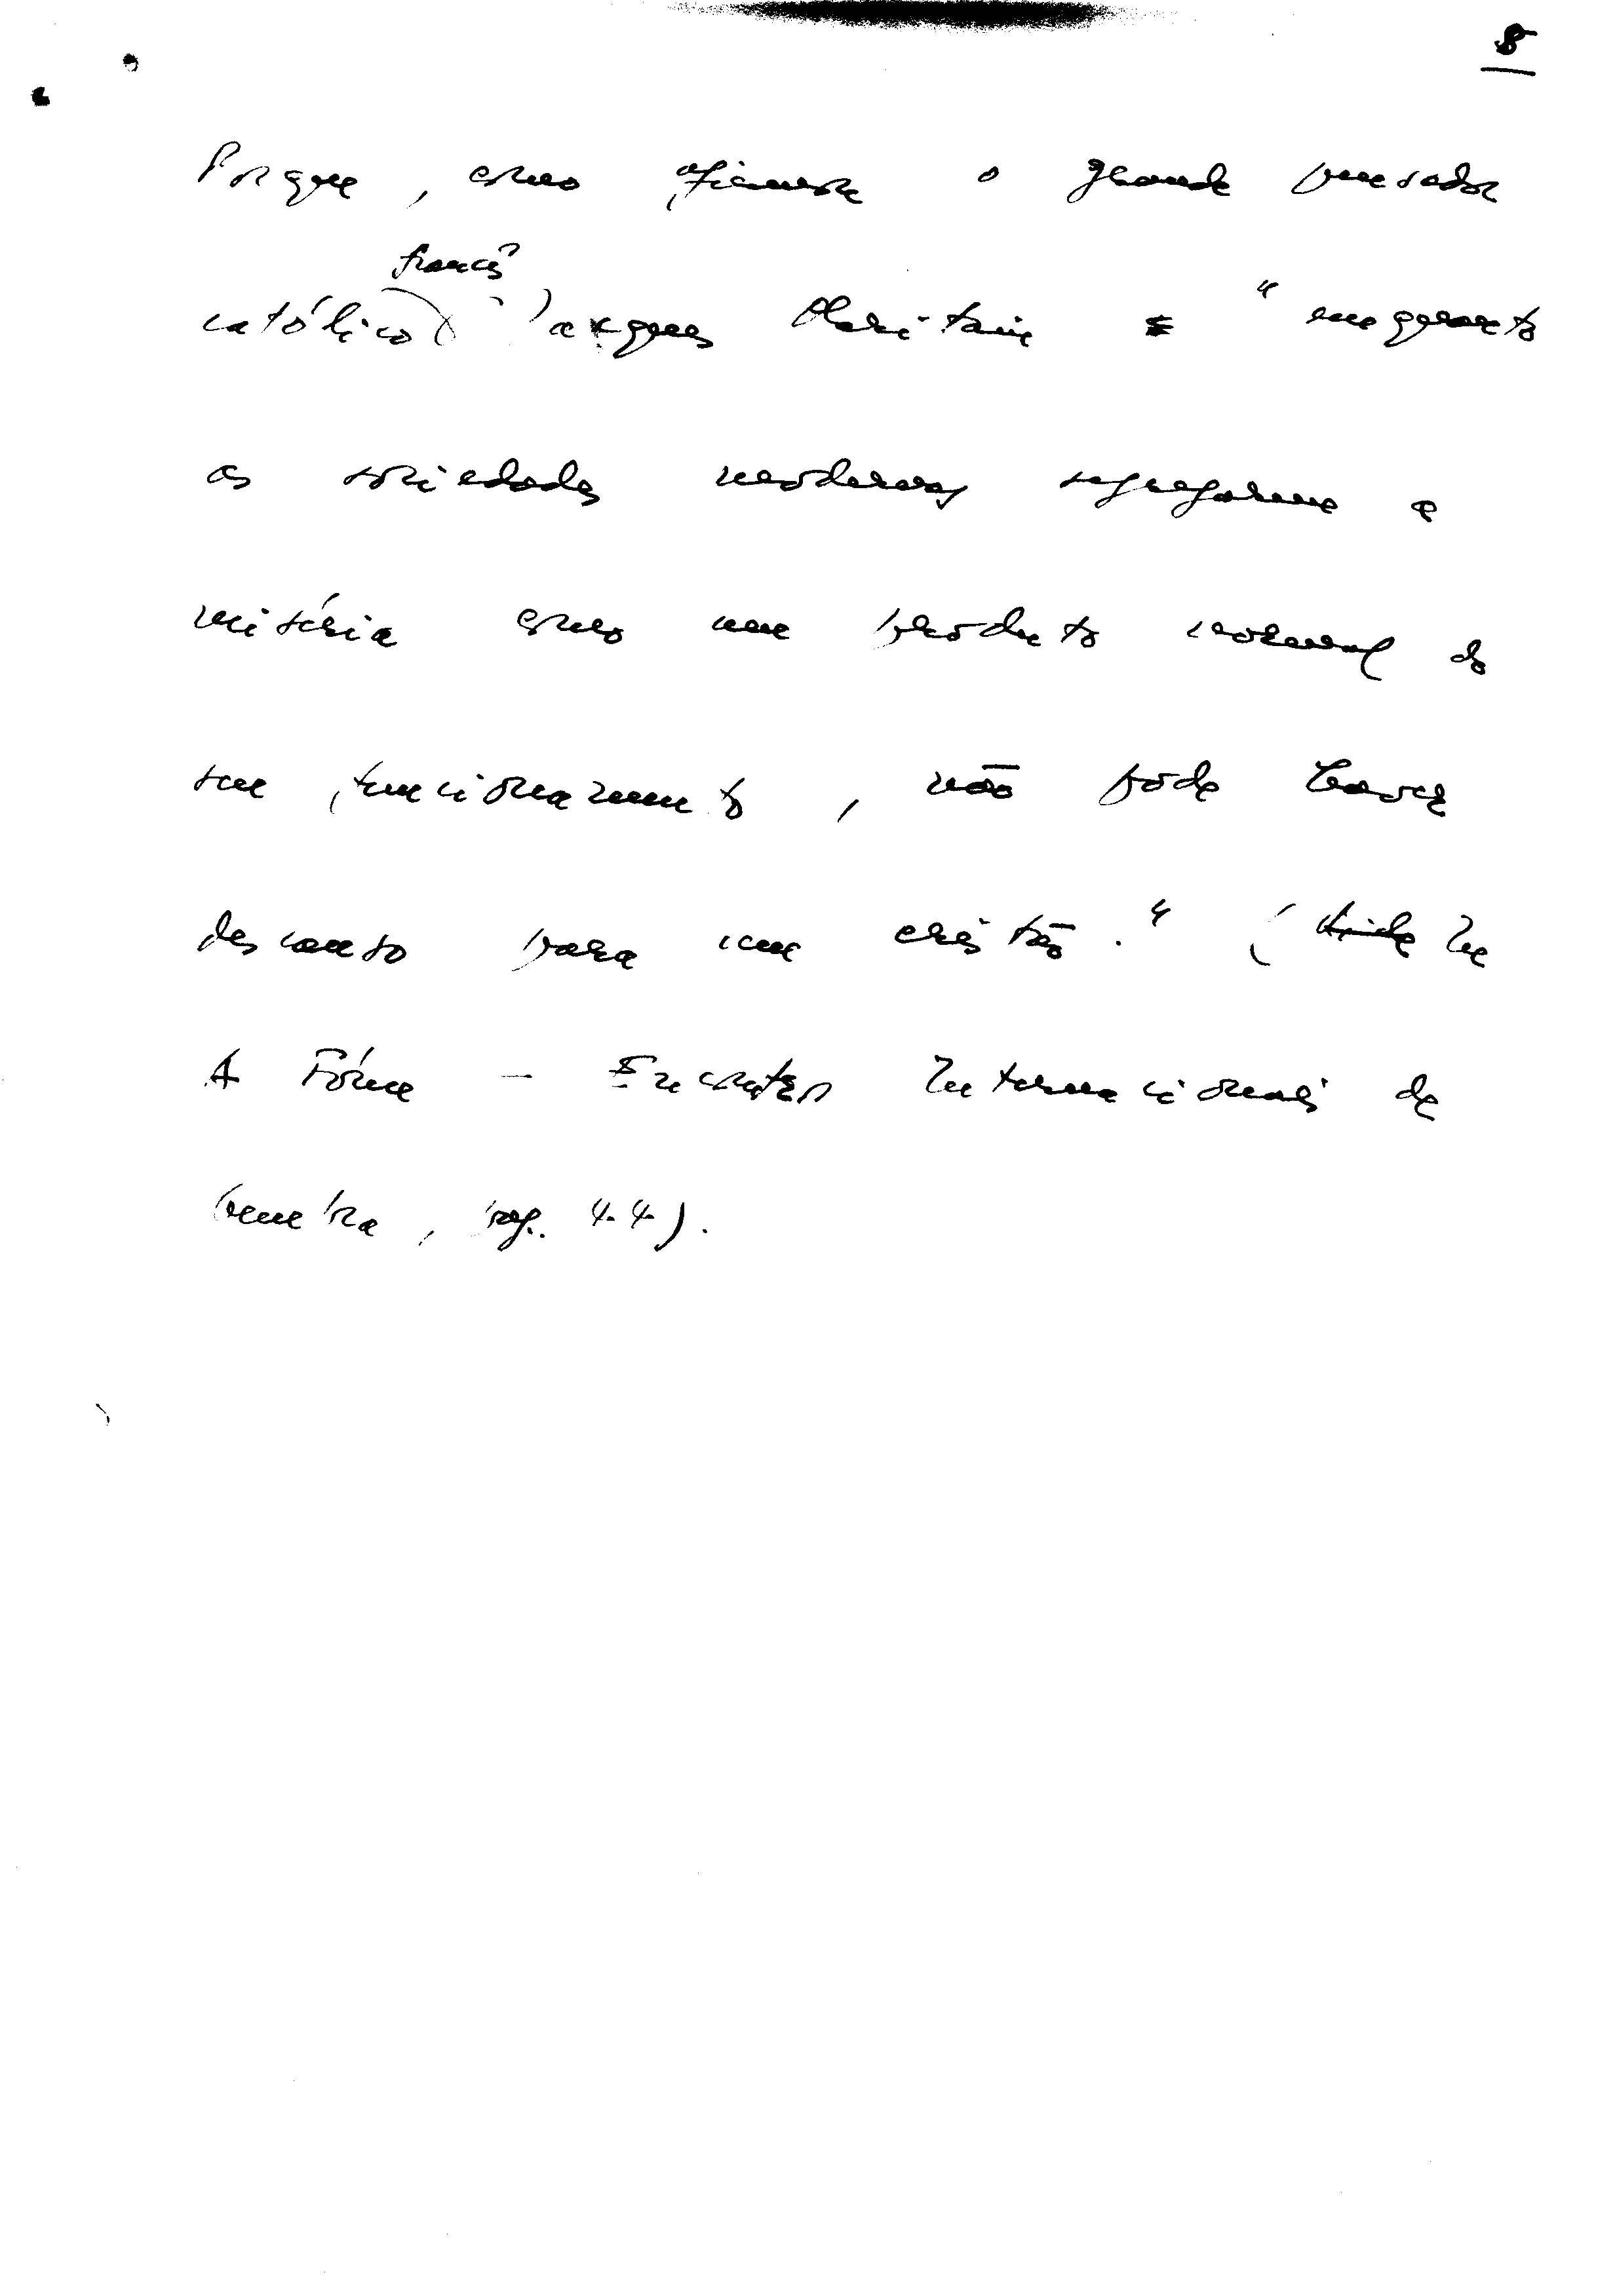 8
Porque, como afirmara o grande pensador
francês
católico Jacques Maritain "enquanto
as sociedades modernas segregarem a
miséria como um produto normal do
seu funcionamento, não pode haver
descanso para um cristão." (In
A Fome - Encontros Internacionais de
Genebra, pag. 44).